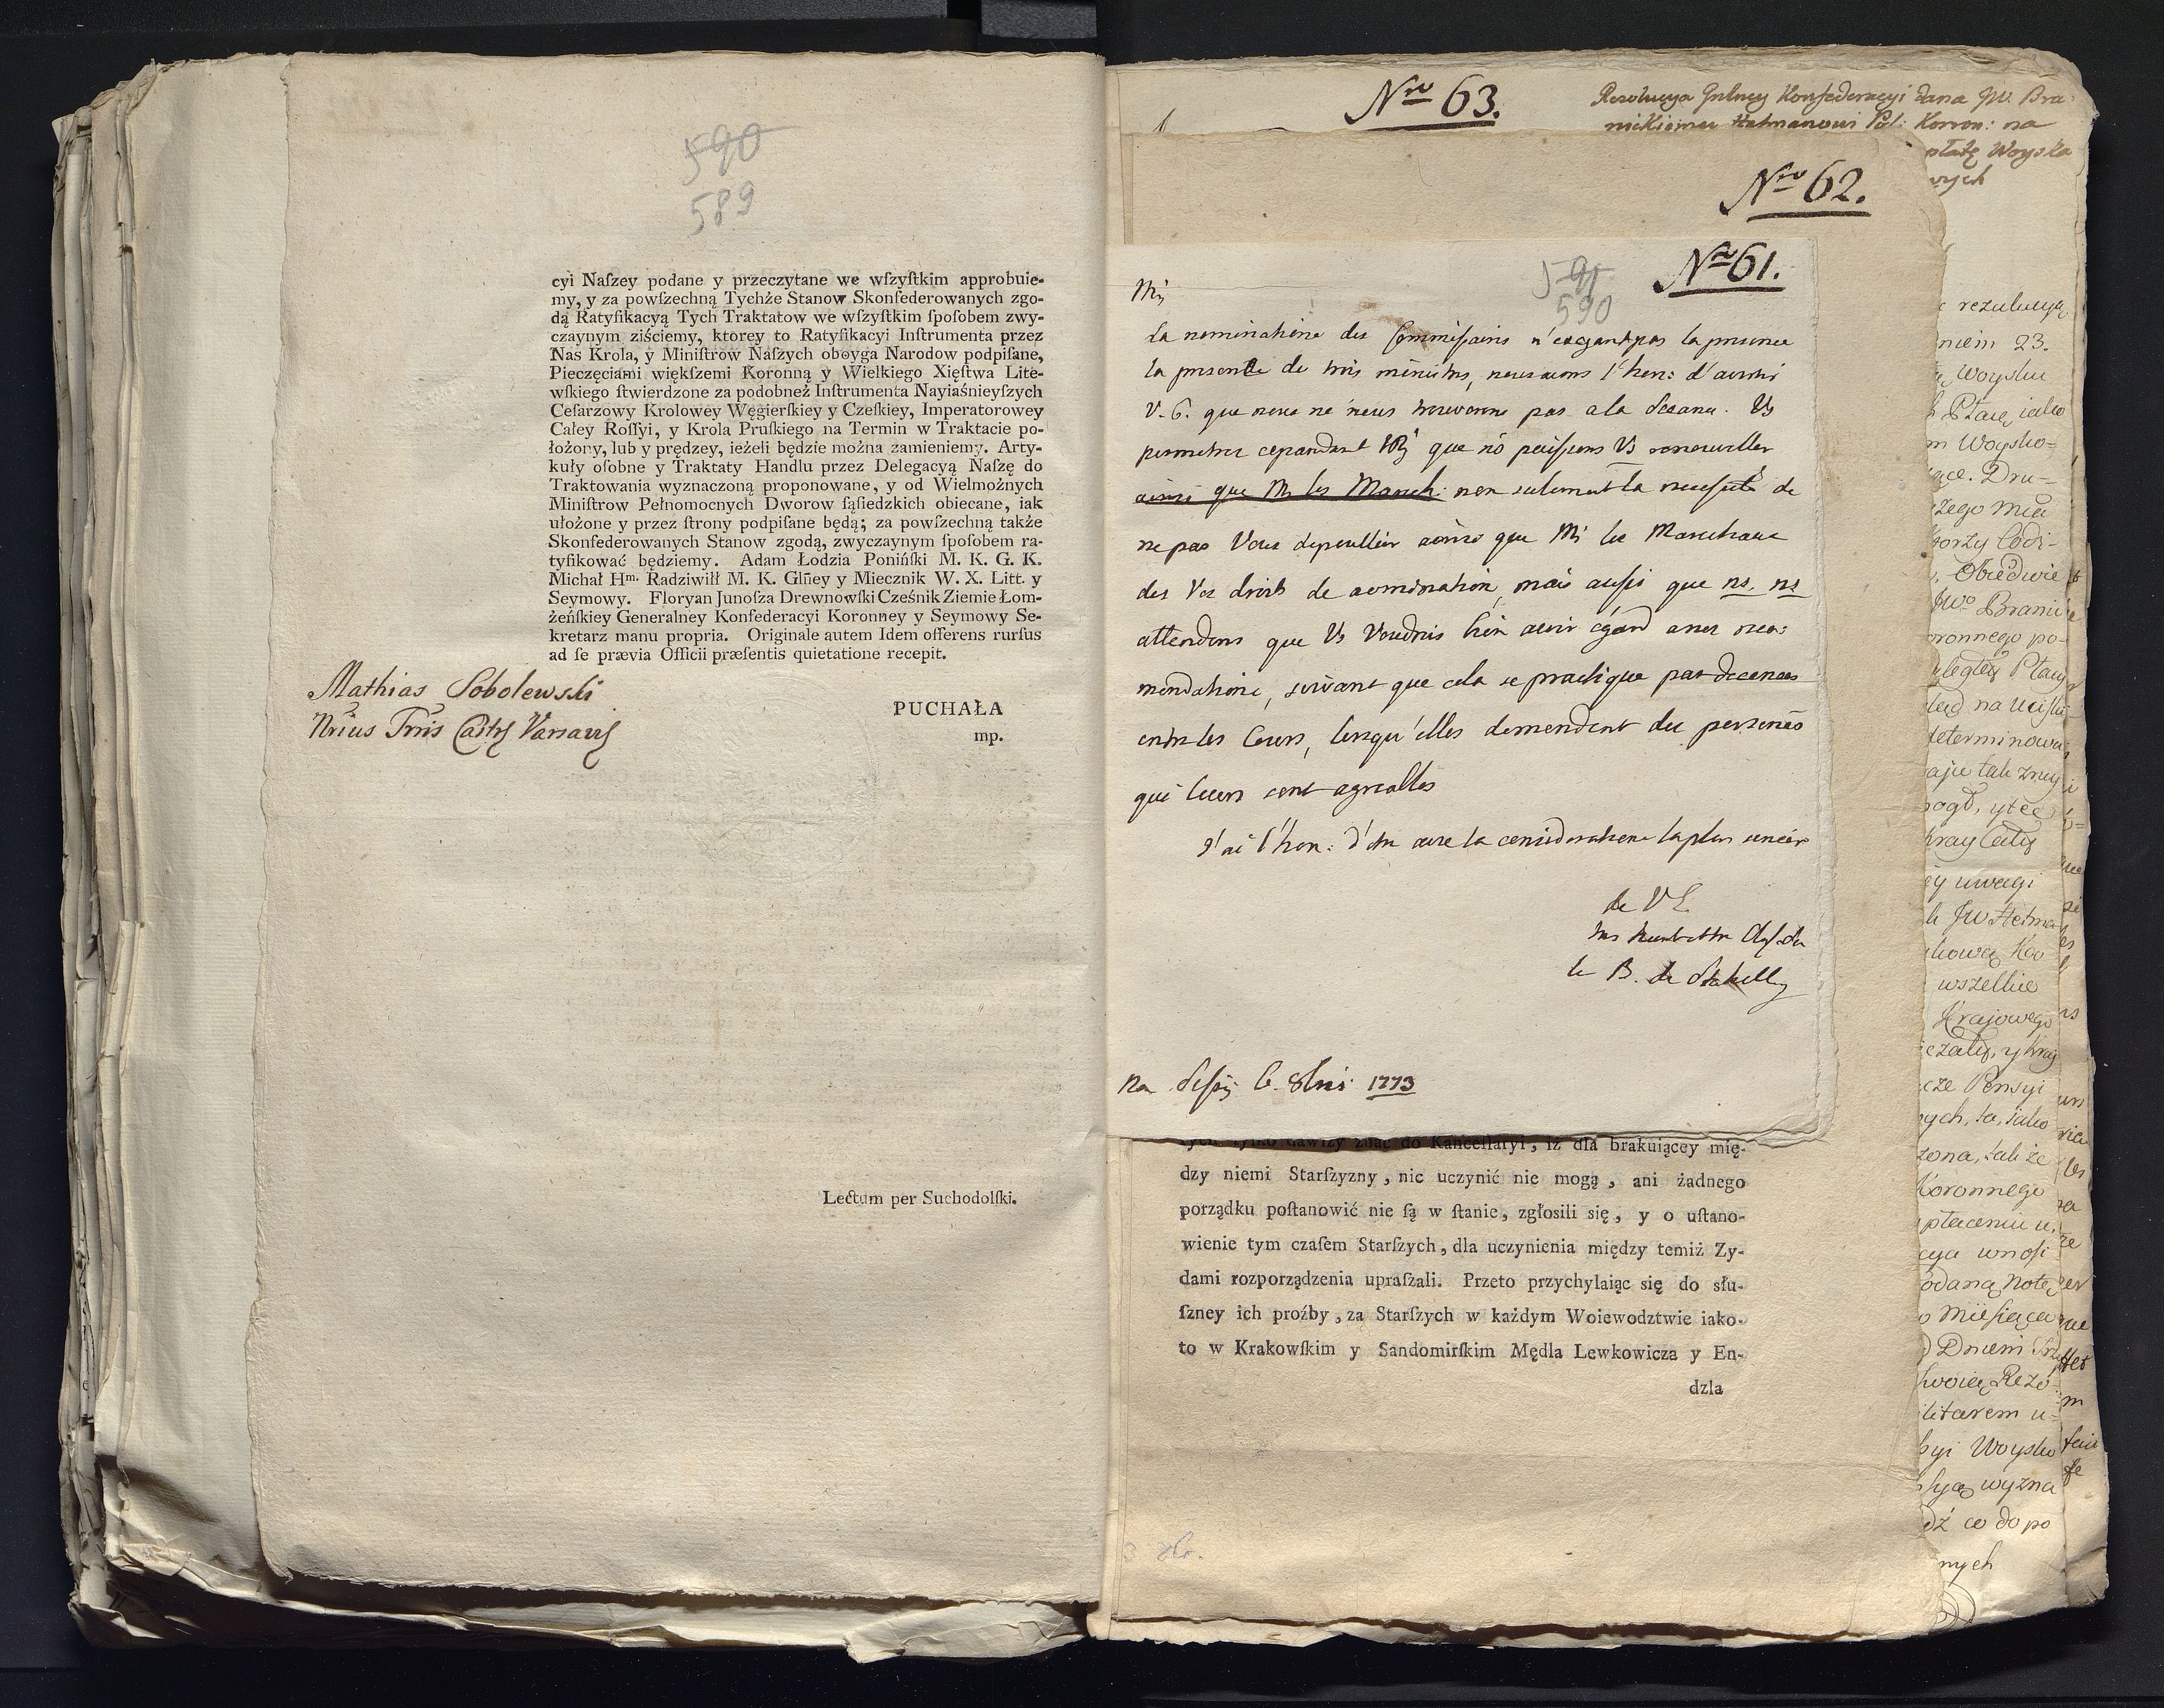 590
589
cyi Naſzey podane y przeczytane we wſzyſtkim approbuie-
my, y za powſzechną Tychże Stanow Skonfederowanych zgo-
dą Ratyfikacyą Tych Traktatow we wſzyſtkim ſpoſobem zwy-
czaynym ziściemy, ktorey to Ratyfikacyi Inſtrumenta przez
Nas Krola, y Miniſtrow Naſzych oboyga Narodow podpiſane,
Pieczęciami więkſzemi Koronną y Wielkiego Xięſtwa Lite-
wſkiego ſtwierdzone za podobneż Inſtrumenta Nayiaśnieyſzych
Ceſarzowy Krolowey Węgierſkiey y Czeſkiey, Imperatorowey
Całey Roſſyi, y Krola Pruſkiego na Termin w Traktacie po-
łożony, lub y prędzey, ieżeli będzie można zamieniemy. Arty-
kuły oſobne y Traktaty Handlu przez Delegacyą Naſzę do
Traktowania wyznaczoną proponowane, y od Wielmożnych
Miniſtrow Pełnomocnych Dworow ſąſiedzkich obiecane, iak
ułożone y przez ſtrony podpiſane będą; za powſzechną także
Skonfederowanych Stanow zgodą, zwyczaynym ſpoſobem ra-
tyfikować będziemy. Adam Łodzia Ponińſki M. K. G. K.
Michał Hm. Radziwiłł M. K. Glñey y Miecznik W. X. Litt. y
Seymowy. Floryan Junoſza Drewnowſki Cześnik Ziemie Łom-
żeńſkiey Generalney Konfederacyi Koronney y Seymowy Se-
kretarz manu propria. Originale autem Idem offerens rurſus
ad ſe prævia Officii præſentis quietatione recepit.
Mathias Sobolewski
PUCHAŁA
mp.
Lectum per Suchodolſki.
Nro 63.
Rezolucya Gnlney Konfederacyi dana JW. Bra-
nickiemu Hetmanowi Pol: Koron: na
płatę Woyska
Nro 62.
Nro 61.
591
590
La nominatione des Commiſsairs n'exigeant pas la presence
la presente de trois ministres, nous avons l'hon: d'avertir
V. E. que nous ne nous trouvons pas a la Seeance. Vs
permettres cepandant que nō puiſsions Vs renouveller
ainsi que Mr les Marech: non seulement la neceſsité de
ne pas Vous depouillier ainsi que Mr les Marechaux
des Vos droits de nomination, mais auſsi que ns. ns
attendons que Vs Voudries bien avoir égard a nos reco:
mendations, suivant que cela se practique par decence
entre les Cours, lorsqu'elles demendent des personēs
qui leurs sont agreables
J'ai l'hon: d'etre avec la consideratione la plus sincère
de V E.
le B. de Stakelberg
Na Seſsij 6. 8bris 1773
tych tylko dawſzy znać do Kancellaryi, iż dla brakuiącey mię-
dzy niemi Starſzyzny, nic uczynić nie mogą, ani żadnego
porządku poſtanowić nie ſą w ſtanie, zgłosili się, y o uſtano-
wienie tym czaſem Starſzych, dla uczynienia między temiż Zy-
dami rozporządzenia upraſzali. Przeto przychylaiąc się do słu-
ſzney ich proźby, za Starſzych w każdym Woiewodztwie iako-
to w Krakowſkim y Sandomirſkim Mędla Lewkowicza y En-
dzla
rezulucyą
niem 23.
Woysku
Płacę iako
Woysko=
Dru=
Obiedwie
Branic
oronnego po-
Płacy
determinowa
kray Cały
ey uwagi
JW Hetma
wszelkie
Krajowego
Pensyi
Koronnego
płaceniu u.
wnosi
odaną Notę
Miesiąca
Dniem
swoię Rezo
litarem u=
Woysko
wyzna
co do po
nych